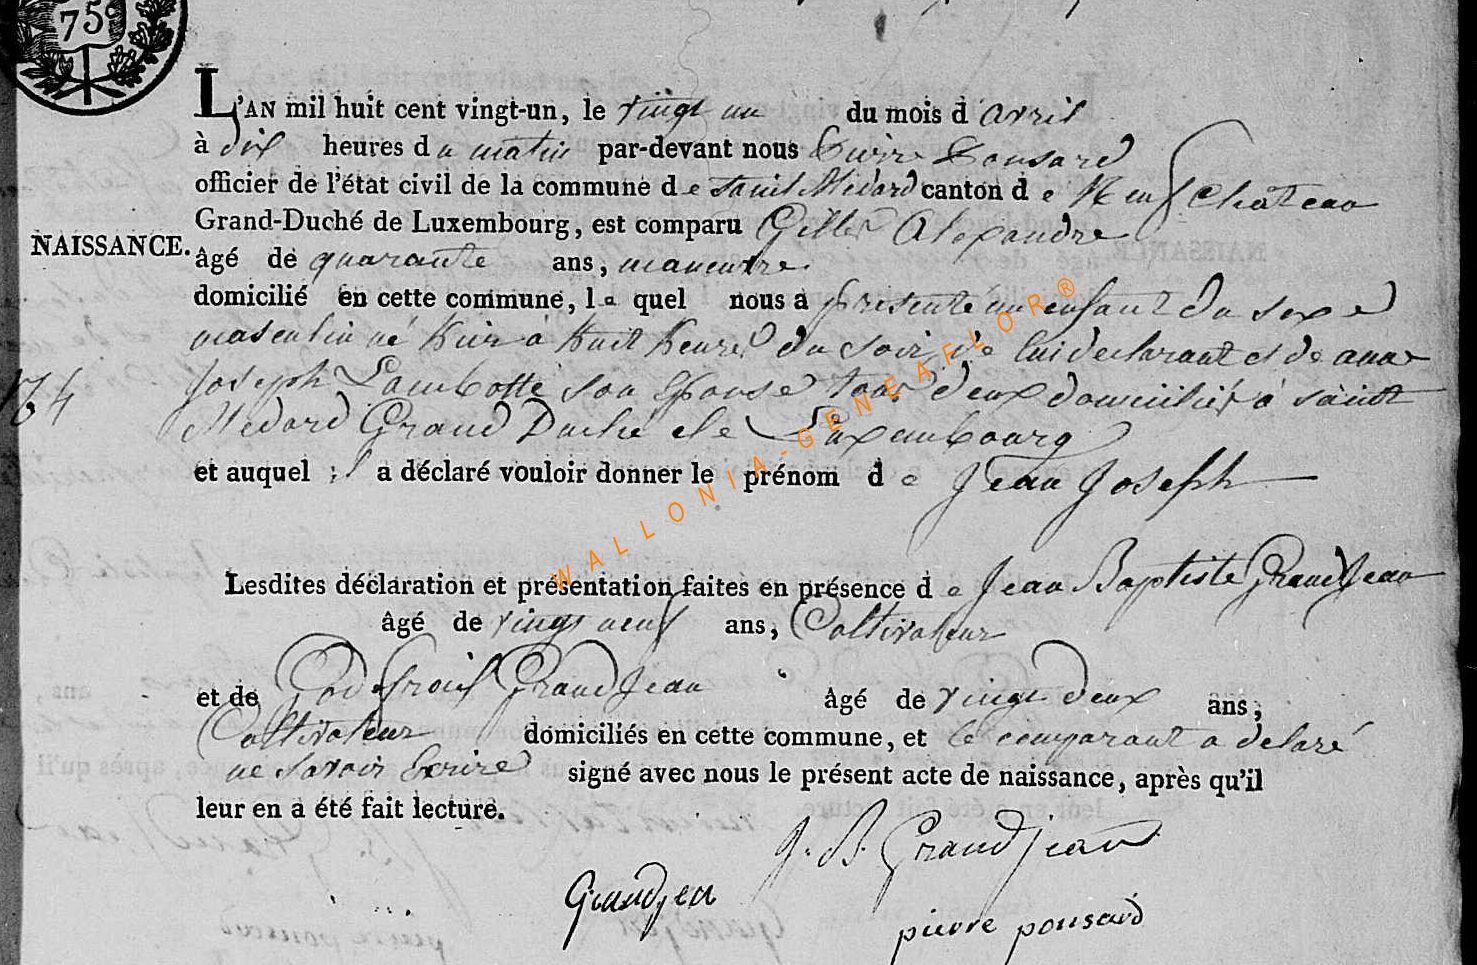 75c
L'AN mil huit cent vingt-un, le vingt un du mois d'avril
à dix heures du matin par-devant nous Pierre Pousard
officier de l'état civil de la commune de Saint Médard canton de Neufchateau
Grand-Duché de Luxembourg, est comparu Gilles Alexandre
NAISSANCE. âgé de quarante ans, maneuvre
domicilié en cette commune, le quel nous a presenté un enfant du sexe
masculin né hier à huit heures du soir, de lui declarant et de anne
Joseph Lambotte son Epouse tous deux domiciliés à saint
Medard Grand Duché de Luxembourg
et auquel il a déclaré vouloir donner le prénom de Jean Joseph
Lesdites déclaration et présentation faites en présence de Jean Baptiste GrandJean
âgé de vingt neuf ans, Coltivateur
et de Godefroid GrandJean âgé de vingt deux ans,
Coltivateur domiciliés en cette commune, et le comparant a delaré
ne savoir Ecrire signé avec nous le présent acte de naissance, après qu'il
leur en a été fait lecture.
J. B. Grandjean
Grandjen
pierre pousard
WALLONIA-GENEAFLOR®